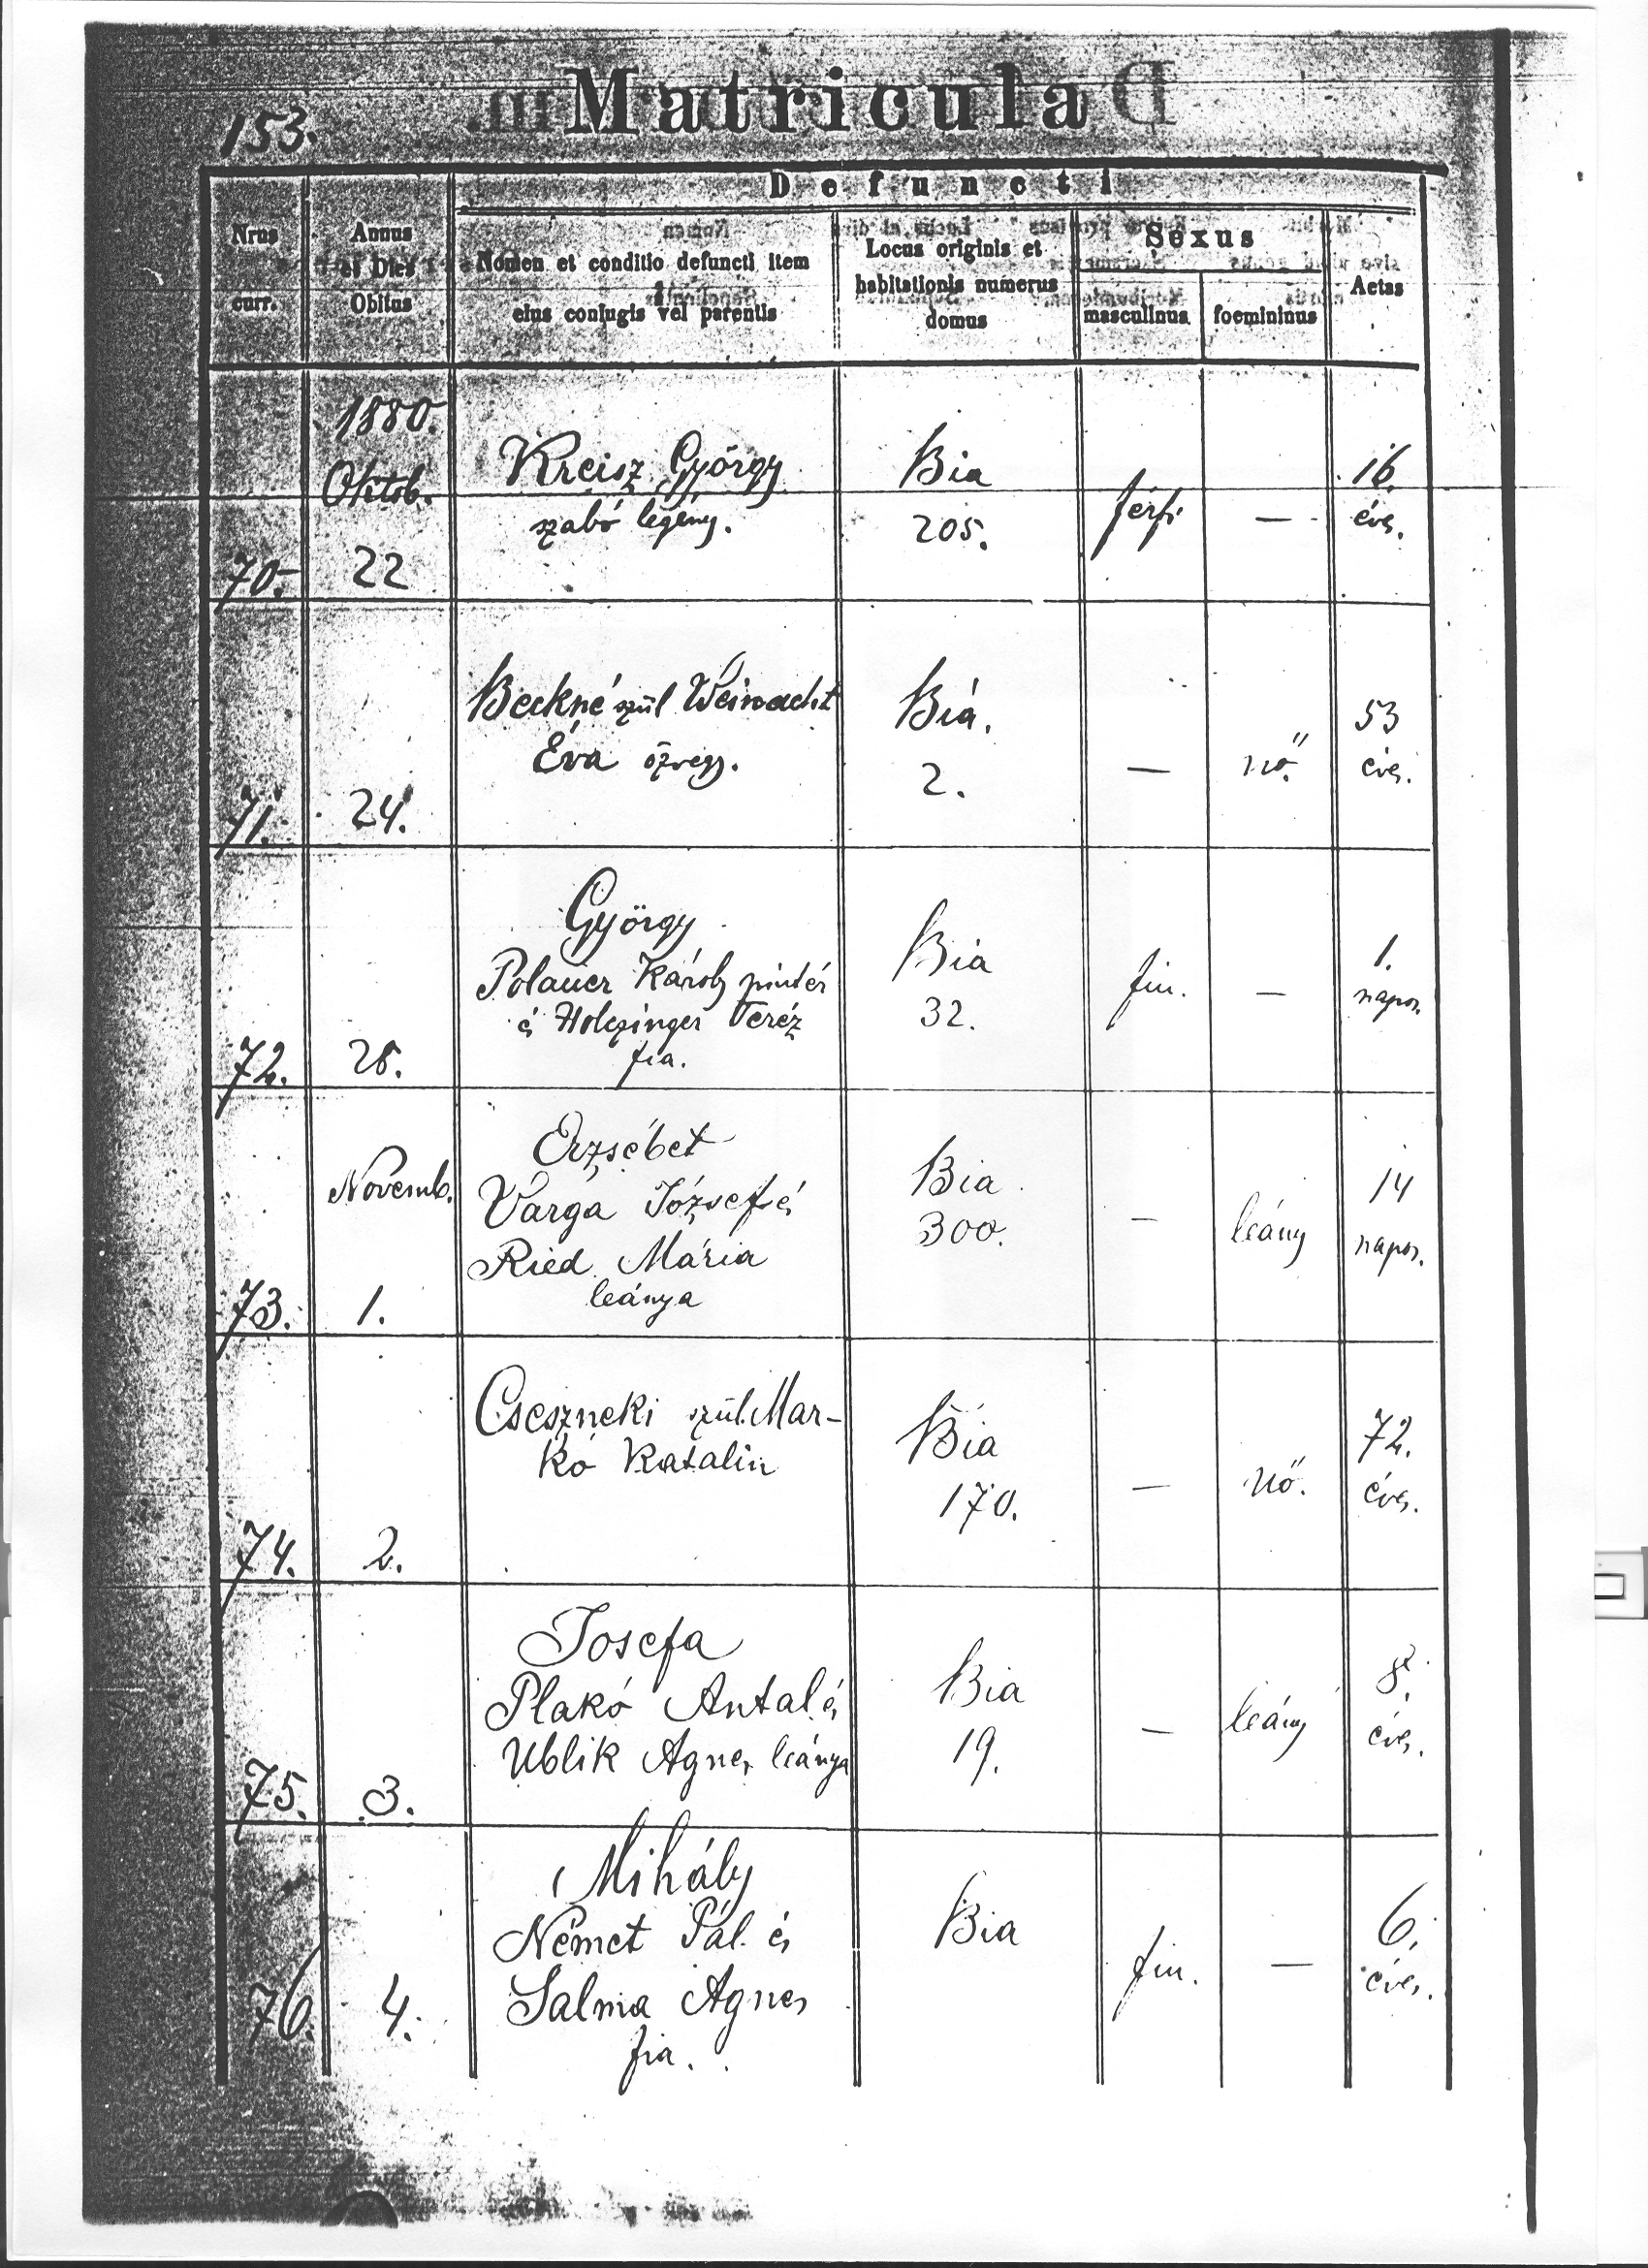 153.
Matricula
Defuncti
Nrus
curr.
Annus
et Dies
Obitus
Nomen et conditio defuncti item
eius coniugis vel parentis
Locus originis et
habitationis numerus
domus
Sexus
masculinus
foemininus
Aetas
1880.
Oktob.
70.
22
Kreisz György
szabó legény.
Bia
205.
férfi
—
16.
éves.
71.
24.
Beckné szül Weinacht
Éva özvegy.
Bia.
2.
—
nő.
53
éves.
72.
28.
György
Polauer Károly pintér
és Holczinger Teréz
fia.
Bia
32.
fiu.
—
1.
napos.
Novemb.
73.
1.
Erzsébet
Varga József és
Ried Mária
leánya
Bia
300.
—
leány
14
napos.
74.
2.
Cseszneki szül. Mar-
kó Katalin
Bia
170.
—
nő.
72.
éves.
75.
3.
Josefa
Plakó Antal és
Ublik Agnes leánya
Bia
19.
—
leány
8.
éves.
76.
4.
Mihály
Német Pál és
Salma Agnes
fia.
Bia
fiu.
—
6.
éves.